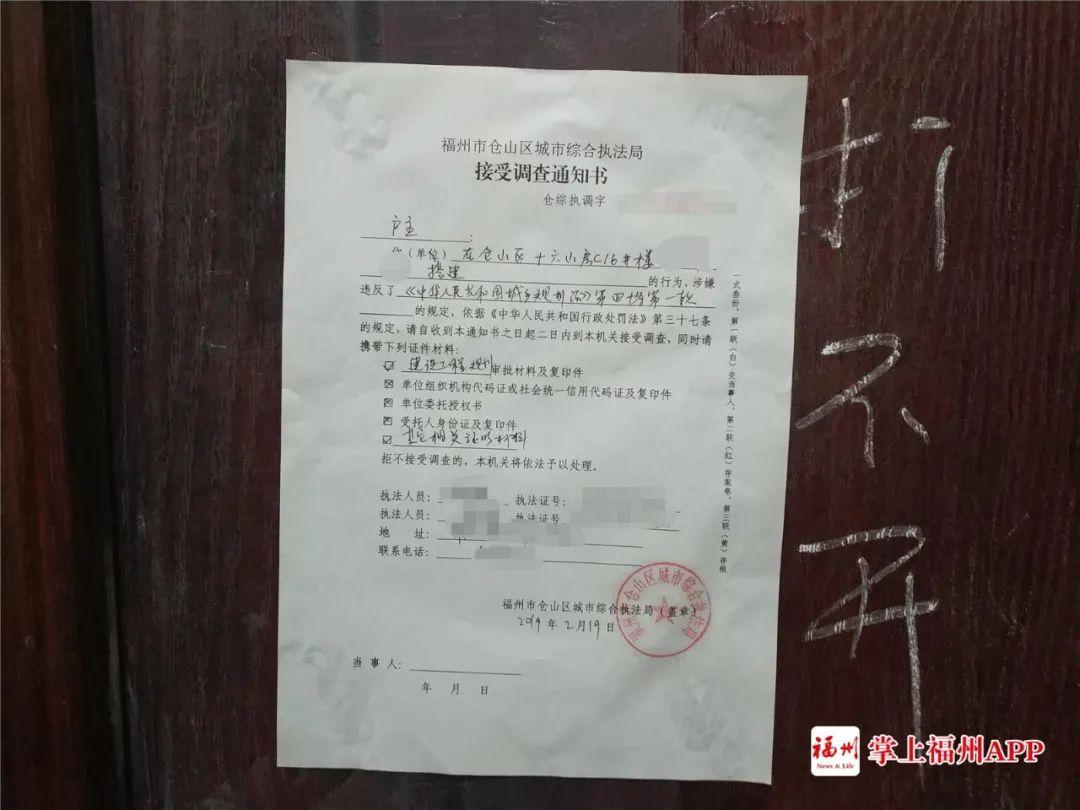 福州市仓山区城市综合执法局
接受调查通知书
仓综执调字
户主:
(单位)在仓山区十六山房C16#楼
搭建的行为,涉嫌
违反了《中华人民共和国城乡规划法》第四十条第一款
的规定,依据《中华人民共和国行政处罚法》第三十七条
的规定,请自收到本通知书之日起二日内到本机关接受调查,同时请
携带下列证件材料:
☑建设工程规划审批材料及复印件
☒单位组织机构代码证或社会统一信用代码证及复印件
☒单位委托授权书
☒受托人身份证及复印件
☑其它相关证明材料
拒不接受调查的,本机关将依法予以处理。
执法人员: 执法证号:
执法人员: 执法证号
地 址:
联系电话:
福州市仓山区城市综合执法局(盖章)
2019年2月19日
福州市仓山区城市综合执法局
当 事 人:
年 月 日
一式叁份,第一联(白)交当事人,第二联(红)存案卷,第三联(黄)存根
打不开
福州
News & Life
掌上福州APP